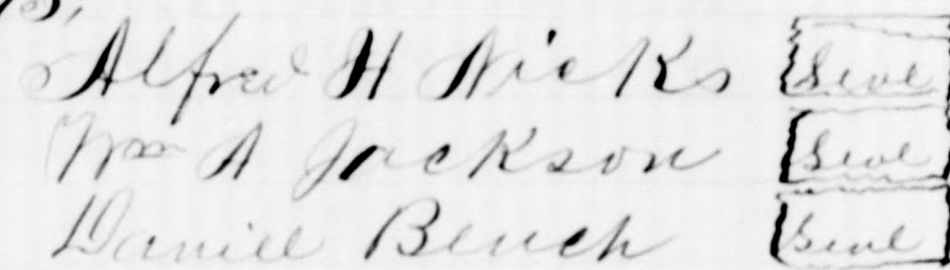 Alfred H Nicks Seal
Wm A Jackson Seal
Daniel Beuch Seal